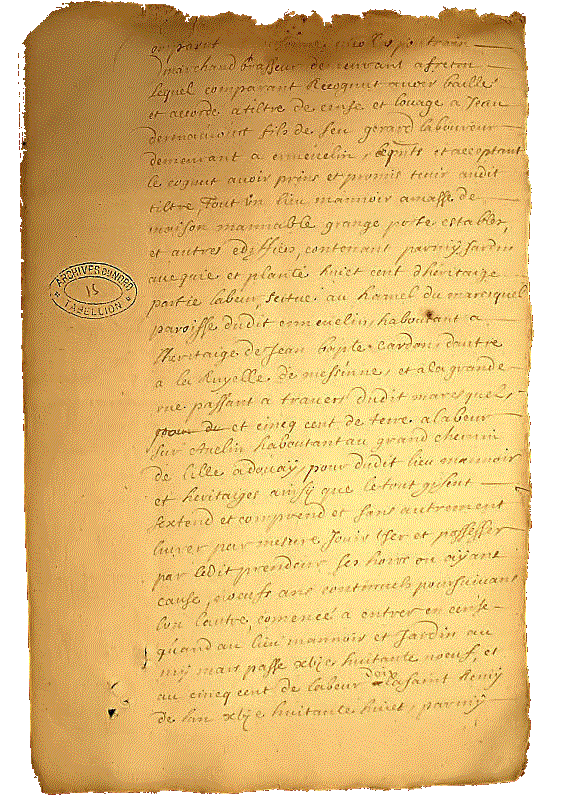 comparut
marchand brasseur demeurant a fretin
Lequel comparant Recognut avoir baillé
et accordé a tiltre de cense et louage a Jean
dermaumont fils de feu gerard laboureur
demeurant a ennevelin, et acceptant
le cognut avoir prins et promis tenir audit
tiltre, Tout un lieu mannoir amassé de
maison mannable grange porte estables,
et autres ediffices, contenant parmy Jardin
et planté huict cent d'héritaige
partie labeur, scitué au hamel du marcsquel
paroisse dudit ennevelin, haboutant a
l'heritaige de Jean bapte Cardon, d'autre
a la Ruyelle de messinne, et a la grande
rue passant a travers dudit maresquel,
et cincq cent de terre a labeur
sur Avelin haboutant au grand chemin
de lille a douay, pour dudit lieu mannoir
et heritaiges ainsy que le tout gisent
s'extend et comprend et sans autrement
livrer par mesure Jouir user et possesser
par ledit prendeur ses hoirs ou ayant
cause, noeufs ans continuels poursuivans
l'un l'autre, comencé a entrer en cense
quand au lieu mannoir et Jardin au
my mars passé xvije huitante noeuf, et
au cincq cent de labeur a la saint Remy
de l'an xvije huitante huict, parmy
ARCHIVES DU NORD
15
TABELLION